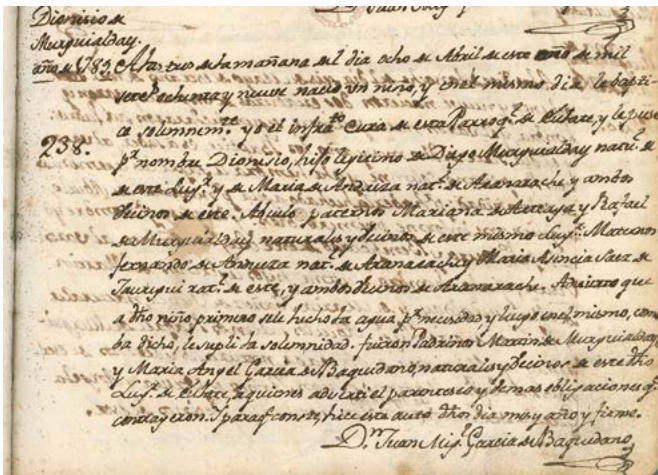 Dionisio de
Murguialday.
año de 1789. A las tres de la mañana del dia ocho de Abril de este año de mil
setec.s ochenta y nueve nacio un niño, y en el mismo dia le bapti-
ce solemnem.te yo el infra.to Cura de esta Parroq.l de Eulate, y le puse
238.
p.r nombre Dionisio, hijo legitimo de Diego Murguialday nat.l de
de este Lug.r y de Maria de Andueza nat.l de Aranarache y ambos
vecinos de este. Abuelos paternos Mariana de y Rafael
de Murguialday naturales y vecinos de este mismo Lug.r: Maternos
Fernando de Andueza nat.l de Aranarache y Maria Asencia Saez de
Jauregui nat.l de este, y ambos vecinos de Aranarache. Advierto que
a dho niño primero se le hechó la agua p.r necesidad y luego en el mismo, como
ba dicho, le supli la solemnidad. fueron Padrinos Martin de Murguialday
y Maria Angel Garcia de Baquedano, naturales y vecinos de este dho
Lug.r de Eulate, a quienes adverti el parentesco y demas obligaciones q.e
contrayeron. Y para q conste, hice este auto dhos dia mes y año y firme.
D.n Juan Mig.l Garcia de Baquedano